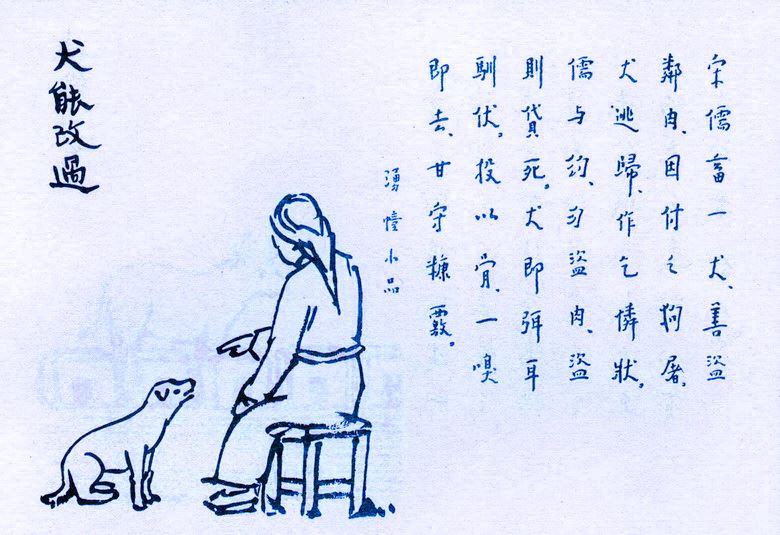 犬能改過
宋儒畜一犬、善盜
鄰肉、因付之狗屠、
犬逃歸、作乞憐狀。
儒与約、勿盜肉、盜
則貸死。犬即弭耳
馴伏。投以骨、一嗅
即去、甘守糠覈。
湧幢小品